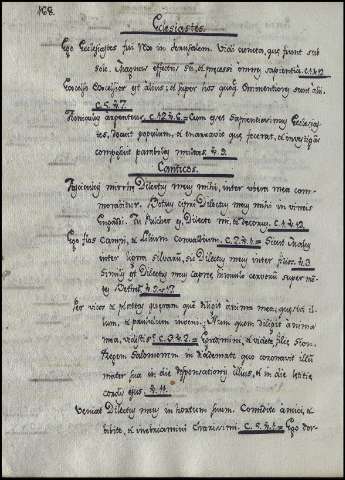 168.
Eclesiastes.
Ego Eclesiastes fui Rex in Jerusalem. Vidi cuncta, que fiunt sub
sole. Magnus effectus su, & precessi omnes sapientia. c.1.
Excelso Excelsior est alius, & super hos
c. 5. 7.
Funiculus argenteus. c. 12. 6. = Cum esset Sapientissimus Eclesias-
tes, docuit populum, & enarravit que fecerat, & investigas
composuit parabolas multas. 9.
Canticos.
Fasciculus mirrhe Dilectus meus mihi, inter ubera mea com-
morabitur. Botrus cipri Dilectus meus mihi in vineis
Engaddi. Tu Pulcher es, Dilecte mi, & decorus. c. 1.
Ego flos Campi, & Lilium convallium. c. 2. 1. = Sicut Malus
inter ligna silvarum, sic Dilectus meus inter filios. 3
Similis est Dilectus meus capre, hinnulo cervorum super mon-
tes Bethel. 17.
Per vicos & plateas queram quem diligit anima mea; quesivi il-
lum, & non inveni. Num quem diligit anima
mea, vidistis? c. 3. 2. = Egredimini, & videte filie Sion
Regem Salomonem in Diademate quo coronavit illum
mater sua in die dispensationis illius, & in die letitie
cordis ejus. 11.
Veniat Dilectus meus in hortum suum. Comedite amici, &
bibite, & inebriamini charissimi. c. 5. 1. = Ego dor-